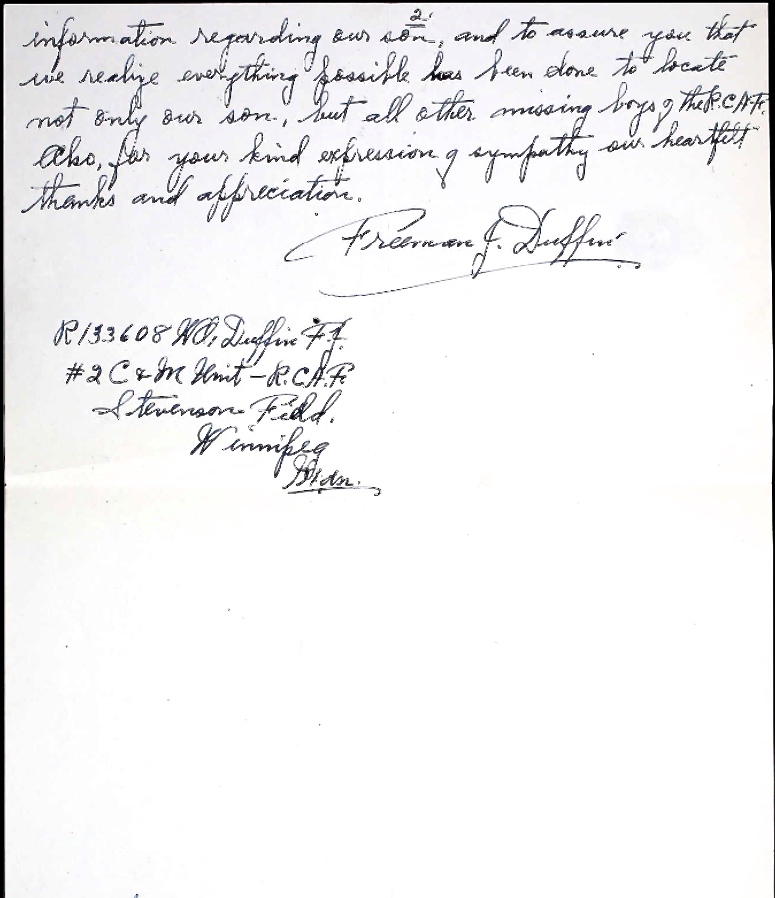 2.
information regarding our son, and to assure you that
we realize everything possible has been done to locate
not only our son, but all other missing boys of the R.C.A.F.
Also, for your kind expression of sympathy our heartfelt
thanks and appreciation.
Freeman J. Duffin
R133608 WO1 Duffin F.J.
#2 C & M Unit - R.C.A.F.
Stevenson Field.
Winnipeg
Man.